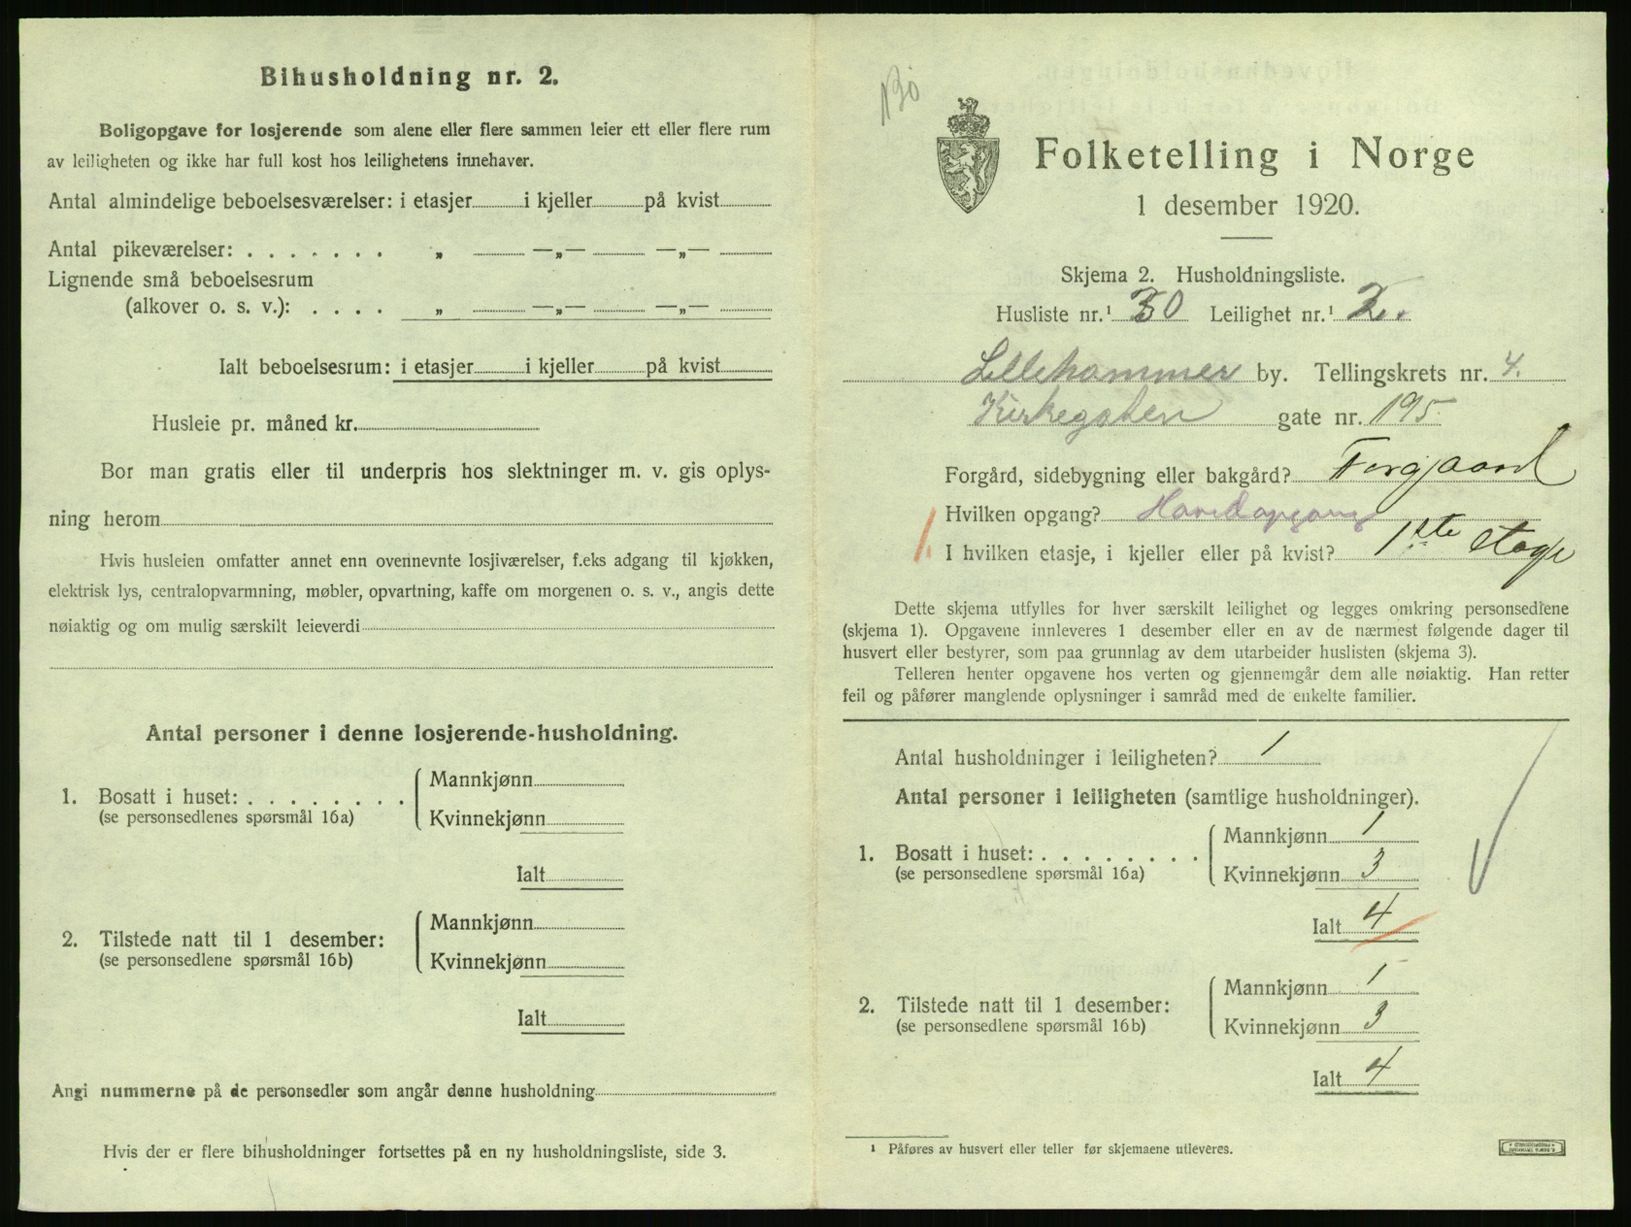 Bihusholdning nr. 2.
Boligopgave for losjerende som alene eller flere sammen leier ett eller flere rum
av leiligheten og ikke har full kost hos leilighetens innehaver.
Antal almindelige beboelsesværelser: i etasjer i kjeller på kvist
Antal pikeværelser: . . . . . . . „ —„— —„—
Lignende små beboelsesrum
(alkover o. s. v.): . . . . „ —„— —„—
Ialt beboelsesrum: i etasjer i kjeller på kvist
Husleie pr. måned kr.
Bor man gratis eller til underpris hos slektninger m. v. gis oplys-
ning herom
Hvis husleien omfatter annet enn ovennevnte losjiværelser, f.eks adgang til kjøkken,
elektrisk lys, centralopvarmning, møbler, opvartning, kaffe om morgenen o. s. v., angis dette
nøiaktig og om mulig særskilt leieverdi
Antal personer i denne losjerende-husholdning.
1. Bosatt i huset: . . . . . . . .
(se personsedlenes spørsmål 16a)
Mannkjønn
Kvinnekjønn
Ialt
2. Tilstede natt til 1 desember:
(se personsedlene spørsmål 16b)
Mannkjønn
Kvinnekjønn
Ialt
Angi nummerne på de personsedler som angår denne husholdning
Hvis der er flere bihusholdninger fortsettes på en ny husholdningsliste, side 3.
Folketelling i Norge
1 desember 1920.
Skjema 2. Husholdningsliste.
Husliste nr.¹ 30 Leilighet nr.¹ 2.
Lillehammer by. Tellingskrets nr. 4.
Kirkegaten gate nr. 195
Forgård, sidebygning eller bakgård? Forgaard
Hvilken opgang? Hovedopgang
1. I hvilken etasje, i kjeller eller på kvist? 1ste etage
Dette skjema utfylles for hver særskilt leilighet og legges omkring personsedlene
(skjema 1). Opgavene innleveres 1 desember eller en av de nærmest følgende dager til
husvert eller bestyrer, som paa grunnlag av dem utarbeider huslisten (skjema 3).
Telleren henter opgavene hos verten og gjennemgår dem alle nøiaktig. Han retter
feil og påfører manglende oplysninger i samråd med de enkelte familier.
Antal husholdninger i leiligheten? 1
Antal personer i leiligheten (samtlige husholdninger).
1. Bosatt i huset: . . . . . . . .
(se personsedlene spørsmål 16a)
Mannkjønn 1
Kvinnekjønn 3
Ialt 4
2. Tilstede natt til 1 desember:
(se personsedlene spørsmål 16b)
Mannkjønn 1
Kvinnekjønn 3
Ialt 4
¹ Påføres av husvert eller teller før skjemaene utleveres.